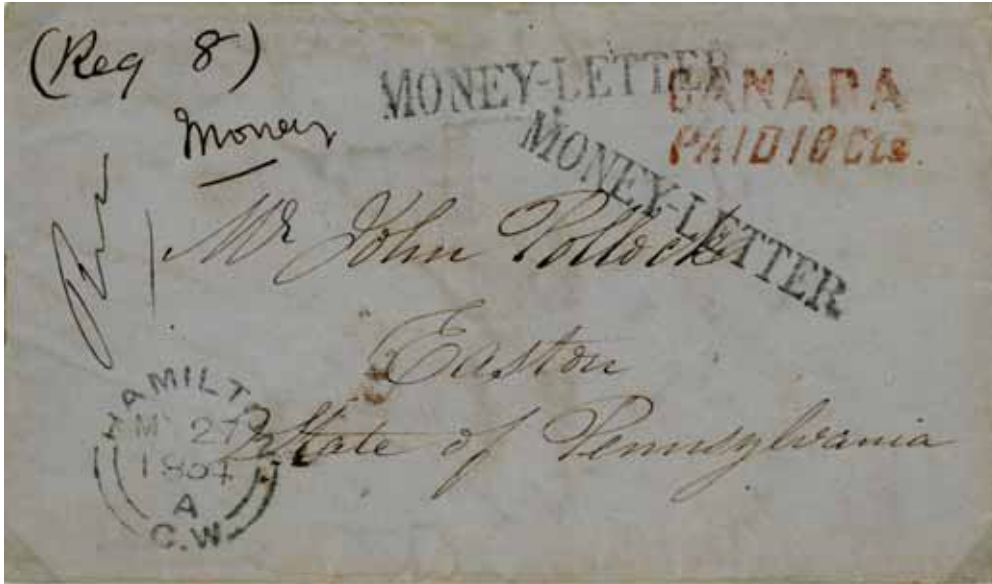 (Reg 8)
Money
MONEY-LETTER
CANADA
PAID 10 Cts.
MONEY-LETTER
Mr John Pollock
Easton
State of Pennsylvania
HAMILT
27
1854
A
C.W.